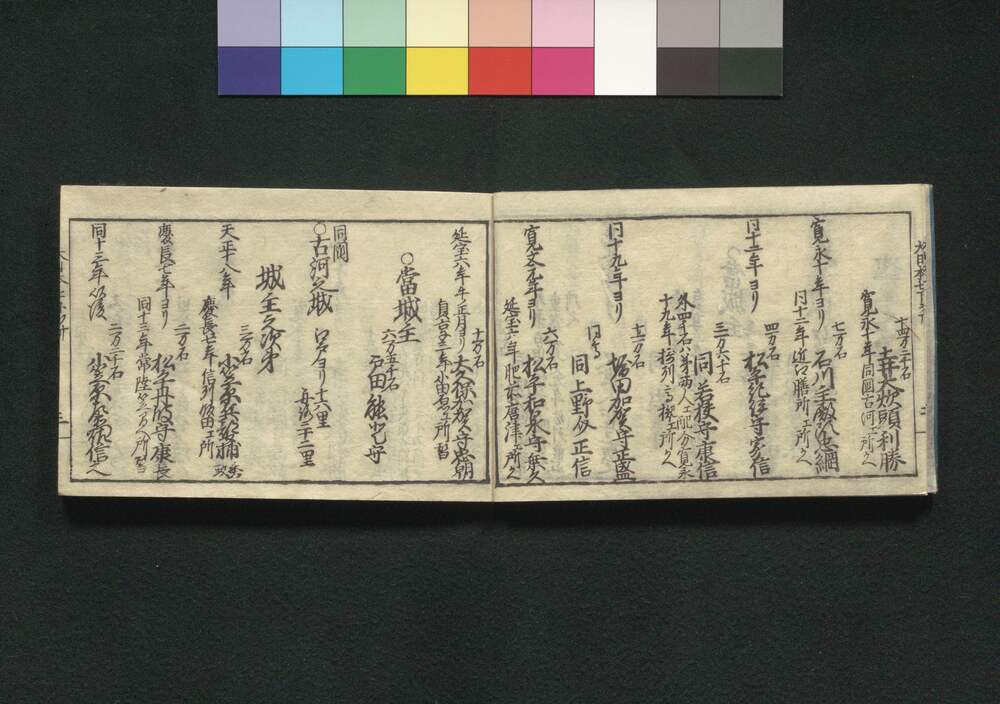 十四万二千石
土井大炊頭利勝
寛永十年同国古河工所久
寛永十年ヨリ
七万石
石川主殿頭忠總
同十一年近江膳所工所久
同十一年ヨリ
四万石
松平紀伊守家信
三万六千石
同 若狭守康信
外四千石ハ弟両人工配分寛永
十九年摂州高槻工所久
同十九年ヨリ
十一万石
堀田加賀守正盛
同 上野介正信
寛文元年ヨリ
六万石
松平和泉守乗久
延宝六年肥前唐津工所久
延宝六年午ノ正月ヨリ
十万石
大久保加賀守忠朝
○當城主
六万五千石
戸田能登守
同國
○古河之城
江戸ヨリ十六里
舟路三十二里
城主之次第
天正十八年
三万石
小笠原兵部大輔秀政
慶長七年信州飯田工所
慶長七年ヨリ
二万石
松平丹波守康長
同十三年常陸笠間へ所替
同十三年以後
二万二千石
小笠原左衛門佐信之